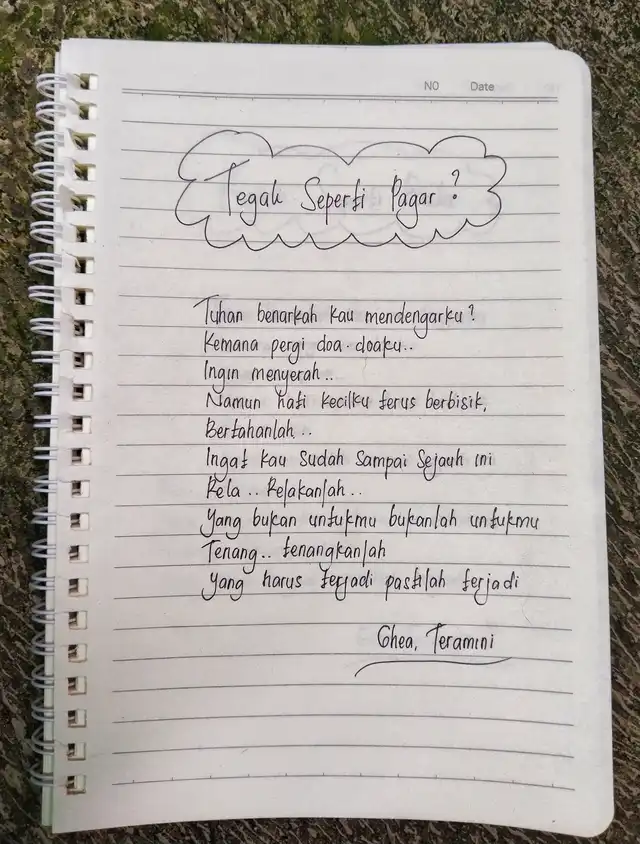 NO Date
Tegak Seperti Pagar?
Tuhan benarkah kau mendengarku?
Kemana pergi doa-doaku..
Ingin menyerah..
Namun hati kecilku terus berbisik,
Bertahanlah..
Ingat kau sudah sampai sejauh ini
Rela.. Relakanlah..
Yang bukan untukmu bukanlah untukmu
Tenang.. tenangkanlah
Yang harus terjadi pastilah terjadi
Ghea, Teramini